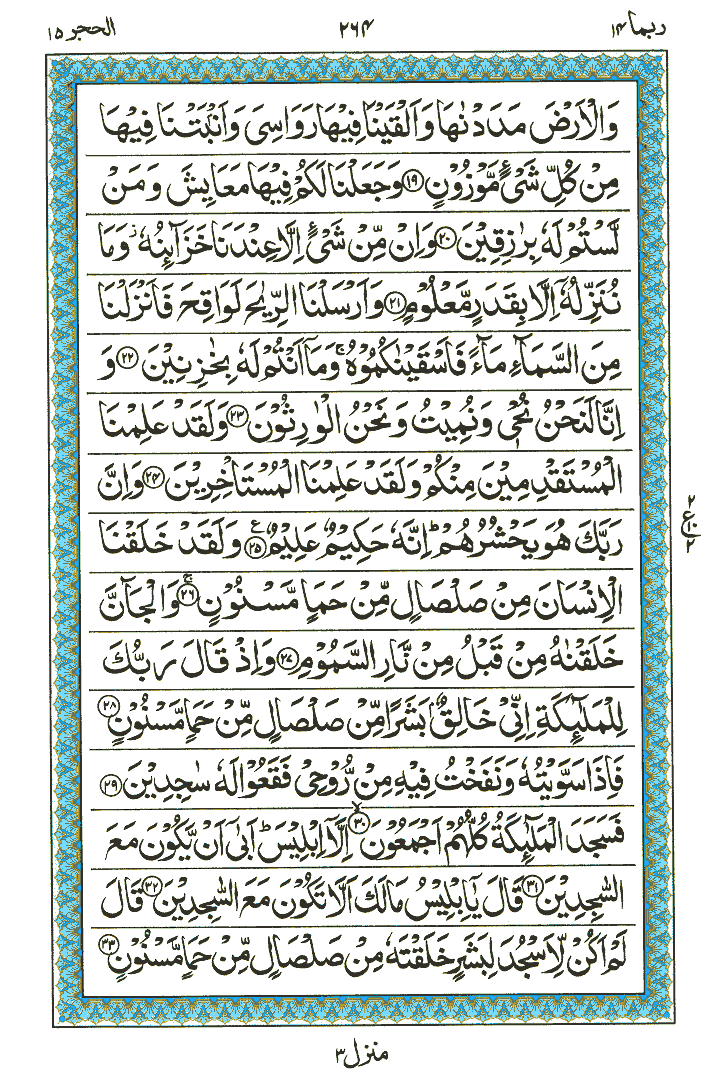 ربما ۱۴ ۲۶۴ الحجر ۱۵
وَالْاَرْضَ مَدَدْنٰهَا وَاَلْقَيْنَا فِيْهَا رَوَاسِيَ وَاَنْۢبَتْنَا فِيْهَا
مِنْ كُلِّ شَيْءٍ مَّوْزُوْنٍ ﴿۱۹﴾ وَجَعَلْنَا لَكُمْ فِيْهَا مَعَايِشَ وَمَنْ
لَّسْتُمْ لَهٗ بِرٰزِقِيْنَ ﴿۲۰﴾ وَاِنْ مِّنْ شَيْءٍ اِلَّا عِنْدَنَا خَزَآئِنُهٗ ؗ وَمَا
نُنَزِّلُهٗۤ اِلَّا بِقَدَرٍ مَّعْلُوْمٍ ﴿۲۱﴾ وَاَرْسَلْنَا الرِّيٰحَ لَوَاقِحَ فَاَنْزَلْنَا
مِنَ السَّمَآءِ مَآءً فَاَسْقَيْنٰكُمُوْهُ ۚ وَمَاۤ اَنْتُمْ لَهٗ بِخٰزِنِيْنَ ﴿۲۲﴾ وَ
اِنَّا لَنَحْنُ نُحْيٖ وَنُمِيْتُ وَنَحْنُ الْوٰرِثُوْنَ ﴿۲۳﴾ وَلَقَدْ عَلِمْنَا
الْمُسْتَقْدِمِيْنَ مِنْكُمْ وَلَقَدْ عَلِمْنَا الْمُسْتَاْخِرِيْنَ ﴿۲۴﴾ وَاِنَّ
رَبَّكَ هُوَ يَحْشُرُهُمْ ؕ اِنَّهٗ حَكِيْمٌ عَلِيْمٌ ﴿۲۵﴾ ع وَلَقَدْ خَلَقْنَا
۲ ع ۲
الْاِنْسَانَ مِنْ صَلْصَالٍ مِّنْ حَمَاٍ مَّسْنُوْنٍ ﴿۲۶﴾ ۚ وَالْجَآنَّ
خَلَقْنٰهُ مِنْ قَبْلُ مِنْ نَّارِ السَّمُوْمِ ﴿۲۷﴾ وَاِذْ قَالَ رَبُّكَ
لِلْمَلٰٓئِكَةِ اِنِّيْ خَالِقٌۢ بَشَرًا مِّنْ صَلْصَالٍ مِّنْ حَمَاٍ مَّسْنُوْنٍ ﴿۲۸﴾
فَاِذَا سَوَّيْتُهٗ وَنَفَخْتُ فِيْهِ مِنْ رُّوْحِيْ فَقَعُوْا لَهٗ سٰجِدِيْنَ ﴿۲۹﴾
فَسَجَدَ الْمَلٰٓئِكَةُ كُلُّهُمْ اَجْمَعُوْنَ ﴿۳۰﴾ ۙ اِلَّاۤ اِبْلِيْسَ ؕ اَبٰۤى اَنْ يَّكُوْنَ مَعَ
السّٰجِدِيْنَ ﴿۳۱﴾ قَالَ يٰۤاِبْلِيْسُ مَا لَكَ اَلَّا تَكُوْنَ مَعَ السّٰجِدِيْنَ ﴿۳۲﴾ قَالَ
لَمْ اَكُنْ لِّاَسْجُدَ لِبَشَرٍ خَلَقْتَهٗ مِنْ صَلْصَالٍ مِّنْ حَمَاٍ مَّسْنُوْنٍ ﴿۳۳﴾
منزل ۳